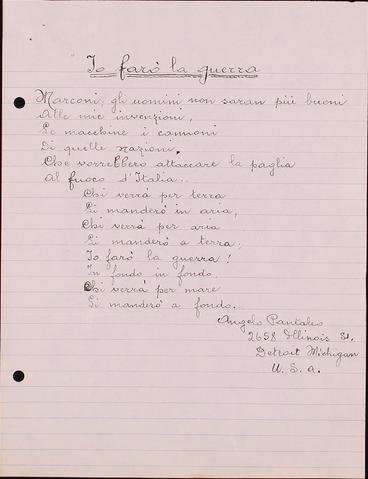 Io farò la guerra
Marconi, gli uomini non saran più buoni
Alle mie invenzioni,
Le macchine i cannoni
Di quelle nazioni.
Che vorrebbero attaccare la paglia
Al fuoco d'Italia..
Chi verrà per terra
Li manderò in aria,
Chi verrà per aria
Li manderò a terra;
Io farò la guerra!
In fondo in fondo.
Chi verrà per mare
Li manderò a fondo.
Angelo Pantaleo
2658 Illinois St.
Detroit Michigan
U. S. a.